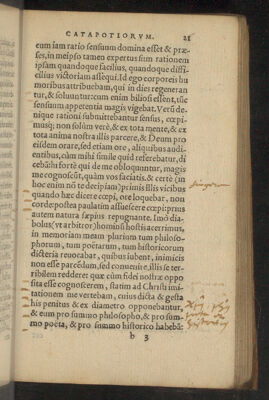 CATAPOTIORVM. 21
eum iam ratio sensuum domina esset & præ-
ses, in meipso tamen expertus sum rationem
ipsam quandoque facilius, quandoque diffi-
cilius victoriam assequi. Id ego corporeis hu
moribus attribuebam, qui in dies regeneran
tur, & soluuntur: cum enim biliosi essent, ijsdem
sensuum appetentia magis vigebat. Verùm de-
nique rationi submittebantur sensus, cœpi-
musque non solùm verò, & ex tota mente, & ex
tota anima nostra illis parcere, & Deum pro
eisdem orare, sed etiam ore, aliquibus audi-
entibus, cùm mihi simile quid referebatur, di
cebam: fortè qui de me obloquuntur, magis
me cognoscunt, quàm vos faciatis. & certè (in
hoc enim nõ te decipiam) primis illis vicibus
quando hæc dicere cœpi, ore loquebar, non
corde: postea paulatim assuescere cœpi: prius
autem natura sæpius repugnante. Imò dia-
bolus (vt arbitror) hominis hostis acerrimus,
in memoriam meam plurium tum philoso-
phorum, tum poëtarum, tum historicorum
dicteria reuocabat, quibus iubent, inimicis
non esse parcendum, sed conuenire, illis se ter-
ribilem reddere: quæ cùm fidei nostræ oppo
sita esse cognoscerem, statim ad Christi imi-
tationem me vertebam, cuius dicta & gesta
his penitus & ex diametro opponebantur,
& eum pro summo philosopho, & pro sum-
mo poëta, & pro summo historico habebã:
b 3